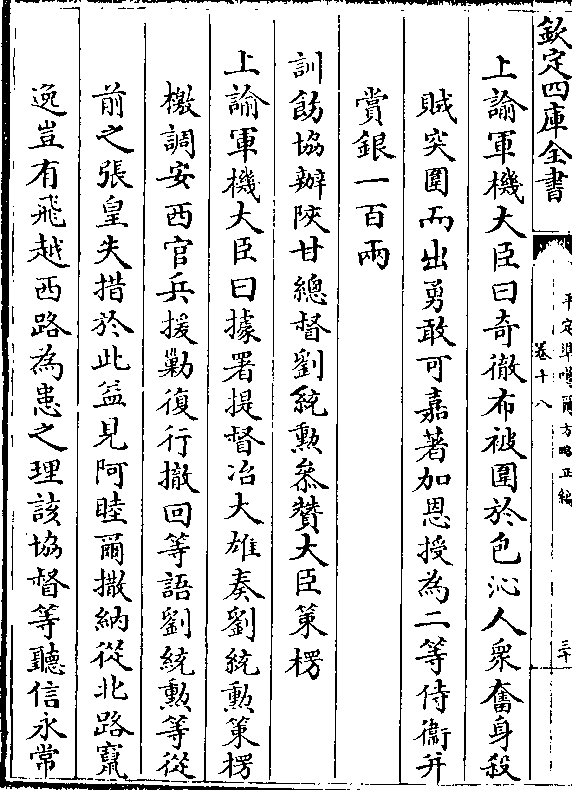 欽定四庫全書
平定準噶爾方略正編
卷十八
三十
上諭軍機大臣曰奇徹布被圍於色沁人衆奮身殺
賊突圍而出勇敢可嘉著加恩授為二等侍衞并
賞銀一百兩
訓飭協辦陜甘總督劉統勲叅贊大臣策楞
上諭軍機大臣曰據署提督冶大雄奏劉統勲策楞
檄調安西官兵援勦復行撤回等語劉統勲等從
前之張皇失措於此益見阿睦爾撒納從北路竄
逸豈有飛越西路為患之理該協督等聽信永常